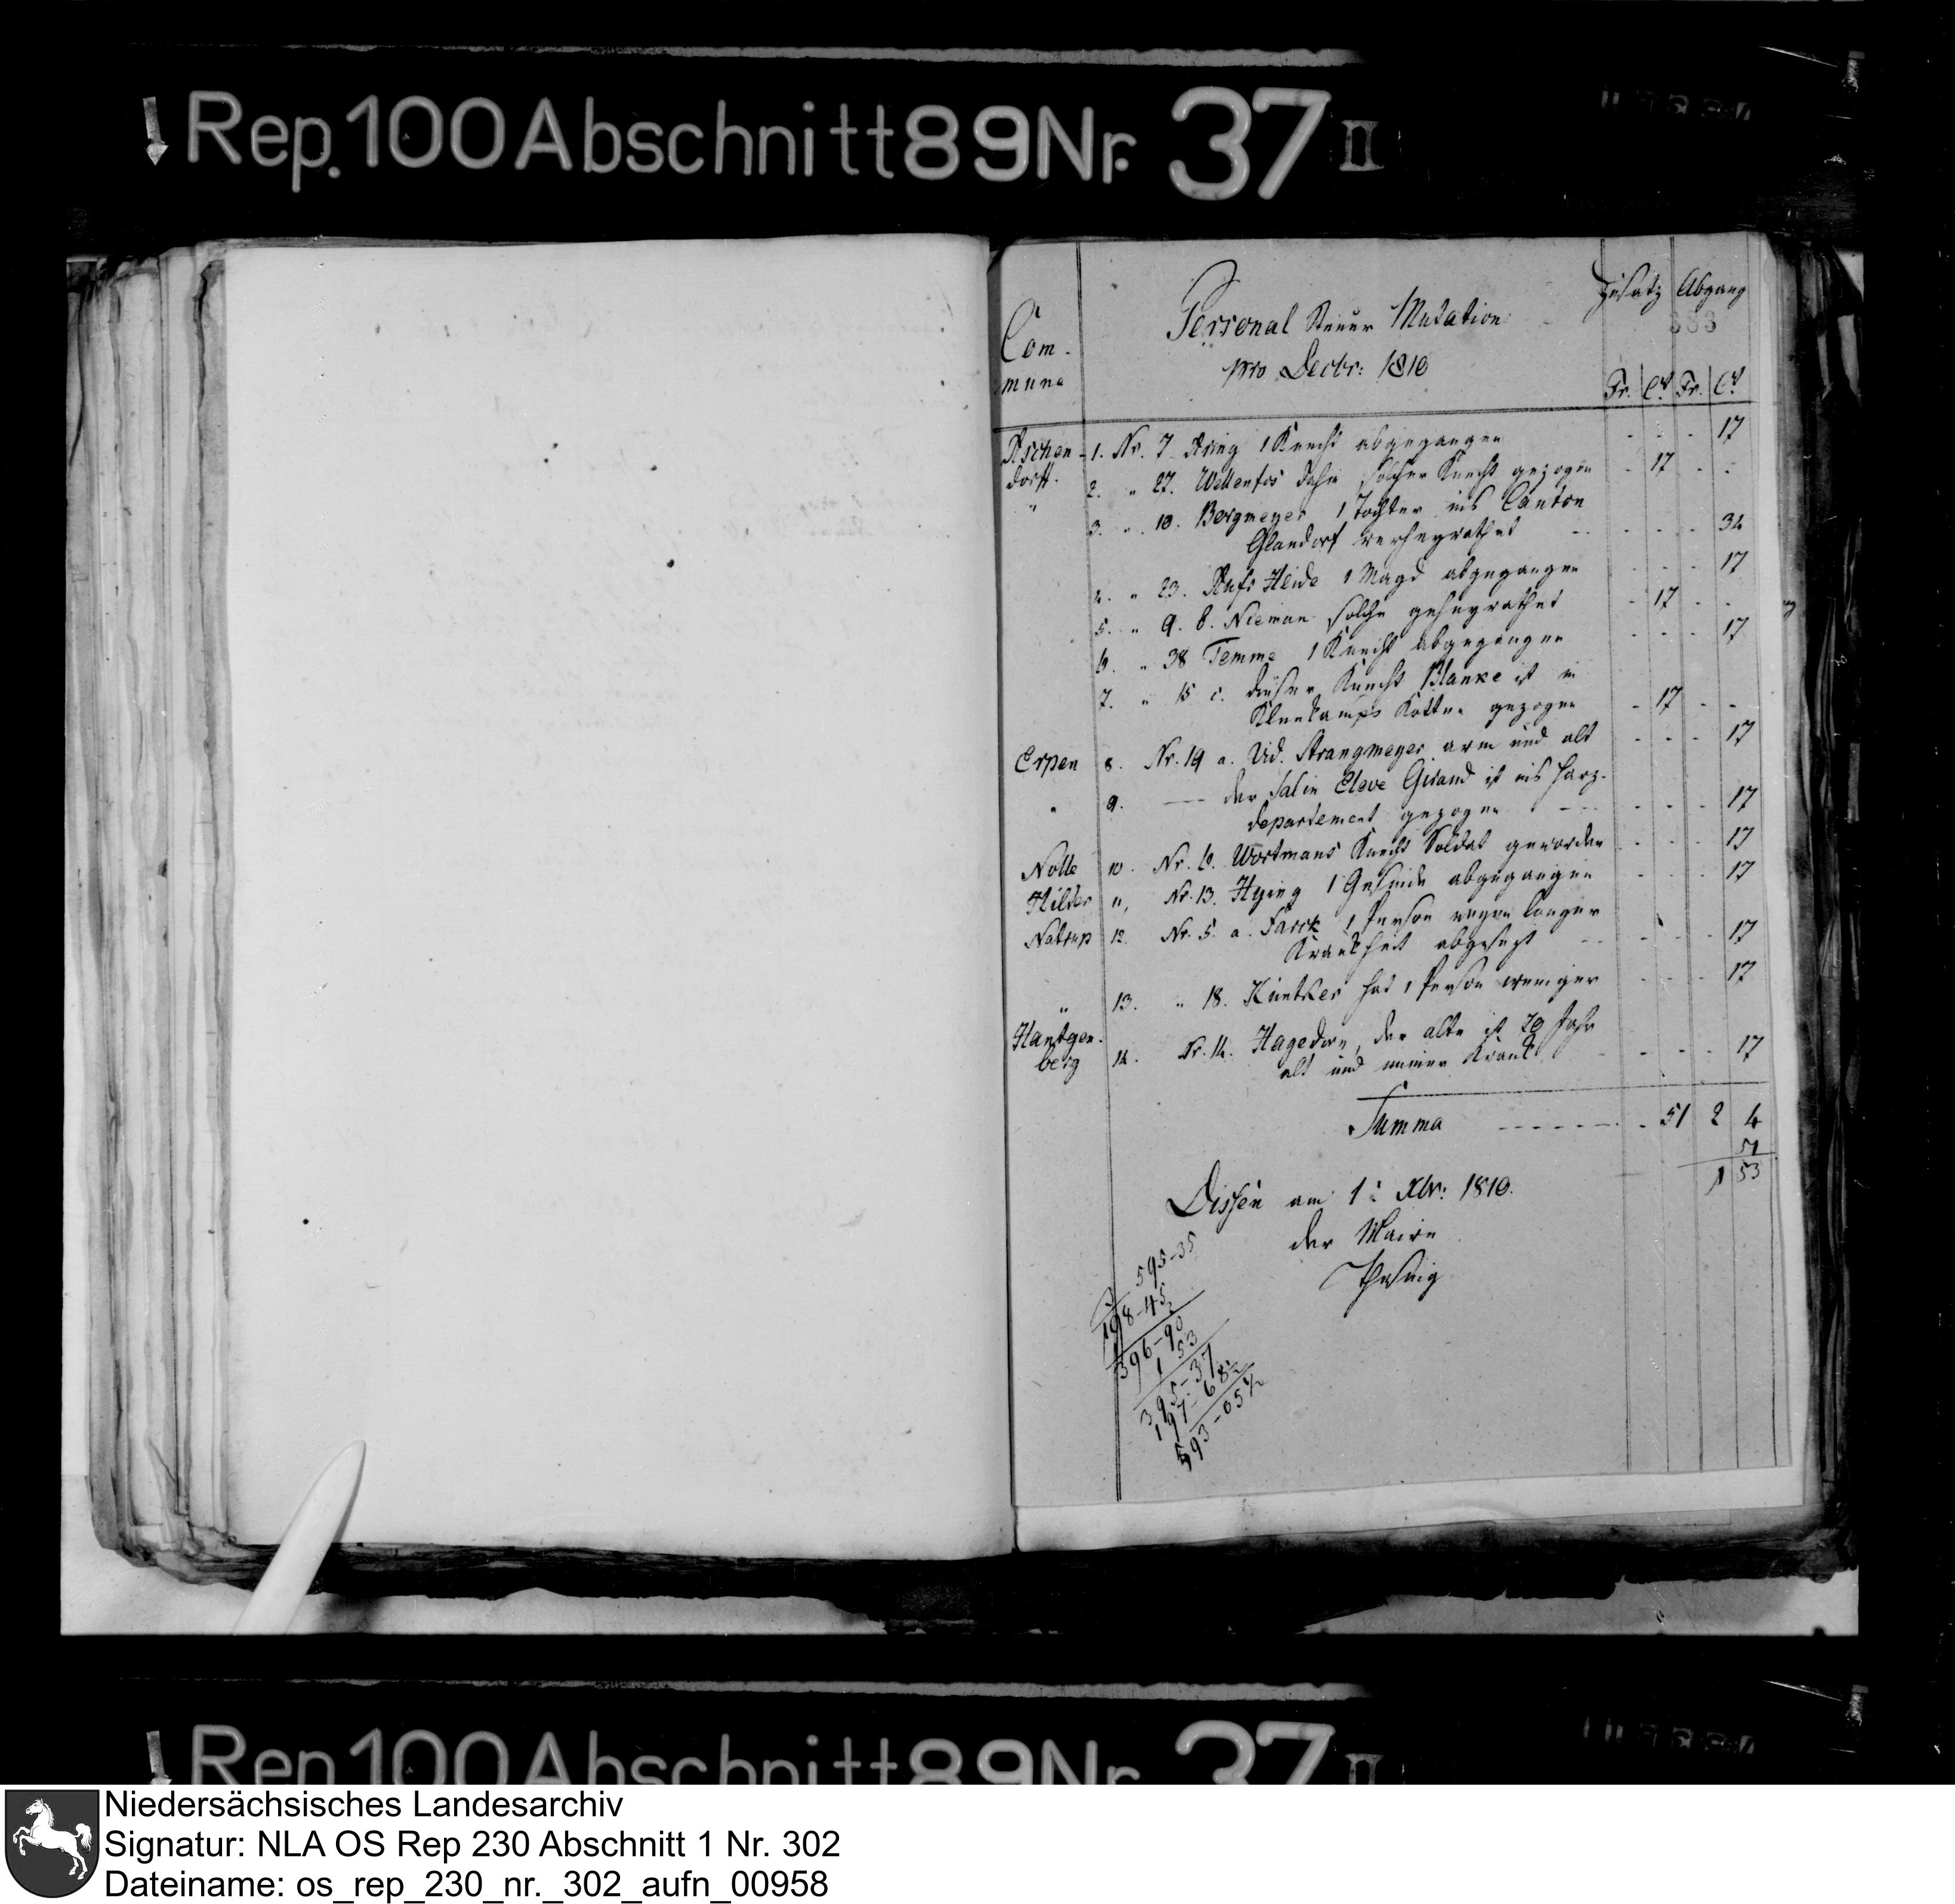 Rep.100Abschnitt89Nr. 37 II
Com-
mune
Personal Steuer Mutation
pro Decbr: 1810
Zusatz Abgang
383
Fr. Ct Fr. Ct
Aschen-
dorff.
1. Nr. 7 1 Knecht abgegangen - - - 17
2. " 27. solcher Knecht gezogen - 17 - -
" 3. " 10. Bergmeyer 1 Tochter ins Canton
Glandorf verheyrathet - - - 34
4. " 23. Heide 1 Magd abgegangen - - - 17
5. " 9. b. Nieman solche geheyrathet - 17 - -
6. " 38 Temme 1 Knecht abgegangen - - - 17
7. " 15 c. dieser Knecht Blanke ist in
Kotten gezogen - 17 - -
Erpen 8. Nr. 19 a. Wid. Strangmeyer arm und alt - - - 17
" 9. — der Salin Eleve Girand ist ins Harz-
departement gezogen - - - 17
Nolle 10. Nr. 6. Wortmans Knecht Soldat geworden - - - 17
Hilder 11. Nr. 13. Hying 1 Gesinde abgegangen - - - 17
Natrup 12. Nr. 5. a. Farck 1 Person wegen langer
Krankheit abgesezt - - - 17
" 13. " 18. Kuntker hat 1 Person weniger - - - 17
Hantgen-
berg 14. Nr. 14. Hagedorn, der alte ist 70 Jahr
alt und immer Krank - - - 17
Summa - 51 2 4
51
1 53
Dissen am 1: Xbr: 1810.
der Maire
595-35
198-45
396-90
1 53
395-37
197-68½
593-05½
Rep.100Abschnitt89Nr. 37 II
Niedersächsisches Landesarchiv
Signatur: NLA OS Rep 230 Abschnitt 1 Nr. 302
Dateiname: os_rep_230_nr._302_aufn_00958